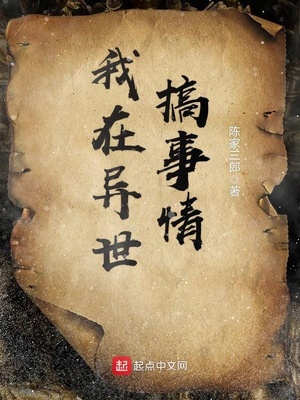 我在异世
搞事情
陈家三郎 著
起 起点中文网